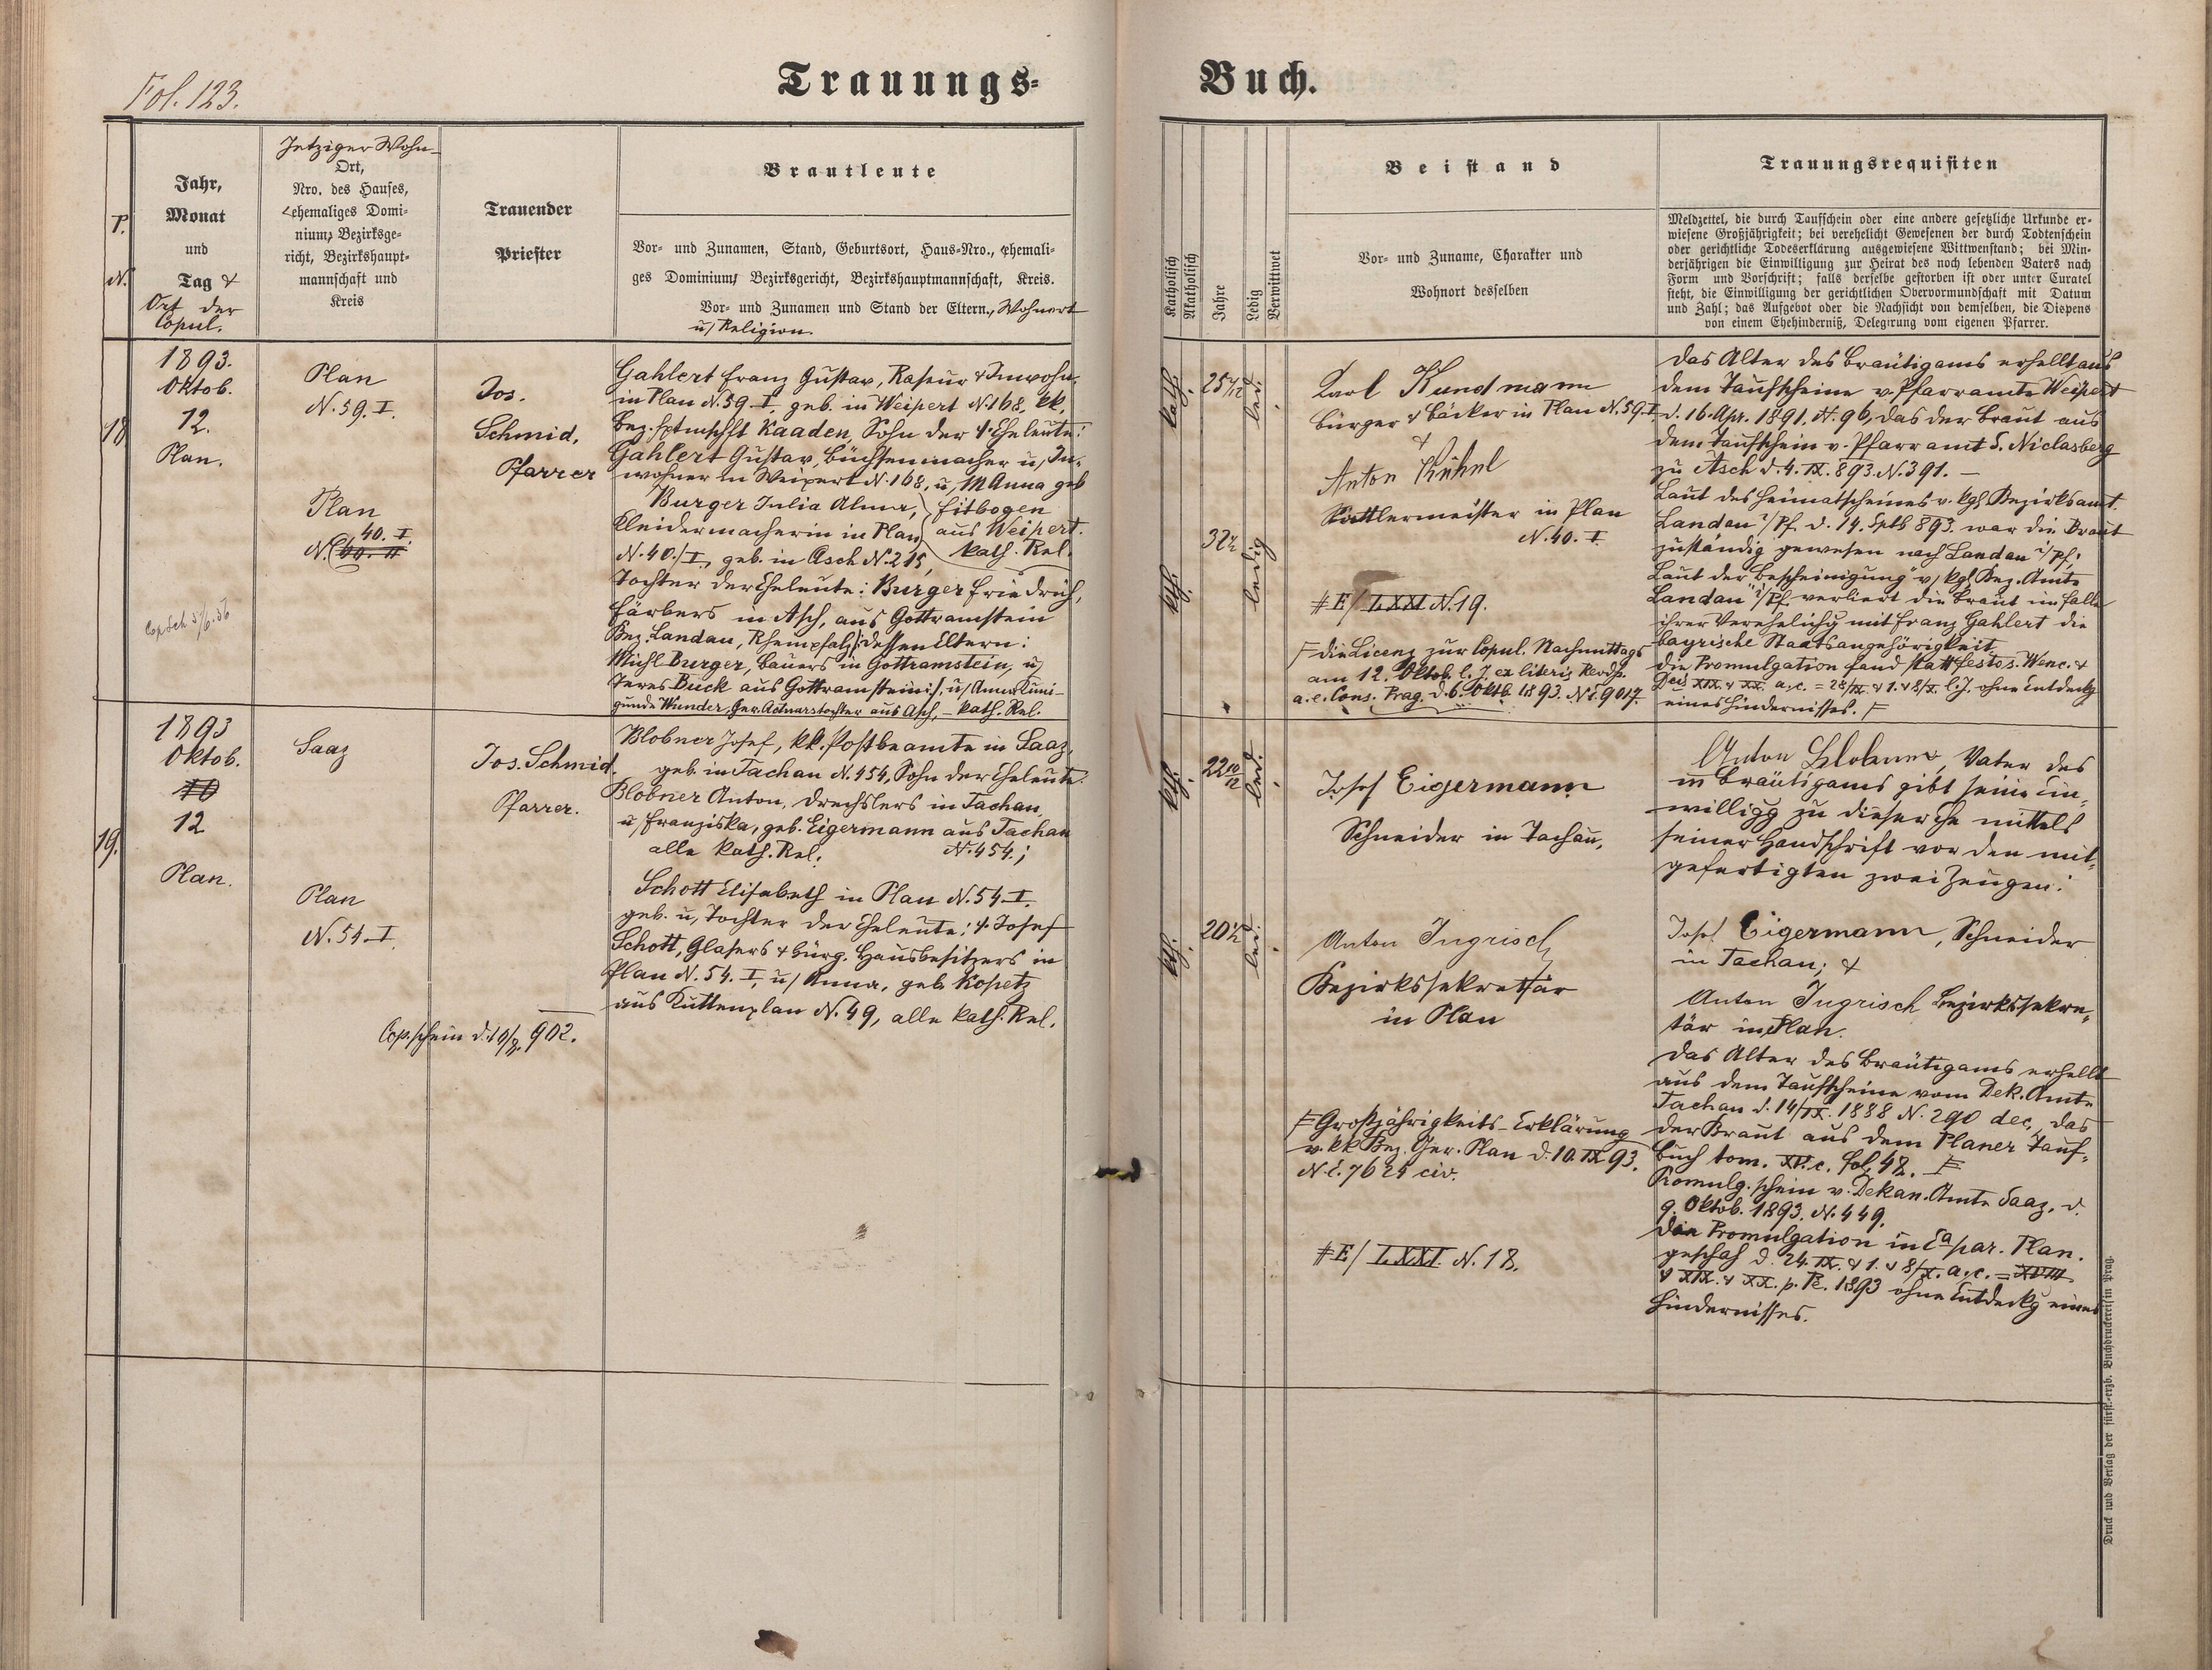 Fol. 123.
Trauungs-
Buch.
P.
N.
Jahr,
Monat
und
Tag &
Ort der
Copul.
Jetziger Wohn-
Ort,
Nro. des Hauses,
ehemaliges Domi-
nium, Bezirksge-
richt, Bezirkshaupt-
mannschaft und
Kreis
Trauender
Priester
Brautleute
Vor- und Zunamen, Stand, Geburtsort, Haus-Nro., ehemali-
ges Dominium, Bezirksgericht, Bezirkshauptmannschaft, Kreis.
Vor- und Zunamen und Stand der Eltern., Wohnort
u/ Religion.
Katholisch
Akatholisch
Jahre
Ledig
Verwittwet
Beistand
Vor- und Zuname, Charakter und
Wohnort desselben
Trauungsrequisiten
Meldzettel, die durch Taufschein oder eine andere gesetzliche Urkunde er-
wiesene Großjährigkeit; bei verehelicht Gewesenen der durch Todtenschein
oder gerichtliche Todeserklärung ausgewiesene Wittwenstand; bei Min-
derjährigen die Einwilligung zur Heirat des noch lebenden Vaters nach
Form und Vorschrift; falls derselbe gestorben ist oder unter Curatel
steht, die Einwilligung der gerichtlichen Obervormundschaft mit Datum
und Zahl; das Aufgebot oder die Nachsicht von demselben, die Dispens
von einem Ehehinderniß, Delegirung vom eigenen Pfarrer.
18
1893.
Oktob.
12.
Plan.
Plan
N. 59. I.
Plan
40. I.
N. 60. II
Jos.
Schmid,
Pfarrer
Gahlert Franz Gustav, Raseur & Inwohn.
in Plan N. 59. I, geb. in Weipert N. 168, kk.
Bez. Hptmschft Kaaden, Sohn der Eheleute:
Gahlert Gustav, Büchsenmacher u, In-
wohner in Weipert N. 168, u, M Anna geb
Fitbogen
aus Weipert.
kath. Rel.
Burger Julia Alma,
Kleidermacherin in Plan
N. 40./I., geb. in Asch N. 215,
Tochter der Eheleute: Burger Friedrich,
Färbers in Asch, aus Gottramstein
Bez. Landau, Rheinpfalz, dessen Eltern:
Michl Burger, Bauers in Gottramstein, u/
Teres Buck aus Gottramstein:/, u/ Anna Kuni-
gunde Wunder, Ger. Actuarstochter aus Asch, - kath. Rel.
kath.
25 7/12
led.
kth.
32 1/2
ledig
Karl Kundmann
Bürger & Bäcker in Plan N. 59. I
&
Anton Kühnl
Sattlermeister in Plan
N. 40. I.
#E/ LXXI N. 19.
F die Licenz zur Copul. Nachmittags
am 12. Oktob. l. J. ex literis Revdss.
a. e. Cons. Prag. d. 6. Oktb. 1893. N. E. 9017.
das Alter des Bräutigams erhellt aus
dem Taufscheine v. Pfarramte Weipert
d. 16. Apr. 1891. N. 96, das der Braut aus
dem Taufschein v. Pfarramt S. Niclasberg
zu Asch d. 4. IX. 893. N. 391. -
Laut des Heimatscheines v. kgl Bezirksamt.
Landau i/Pf. d. 14. Sptb 893. war die Braut
zuständig gewesen nach Landau i/Pf.,
Laut der "Bescheinigung" v/ kgl Bez. Amte
Landau i/Pf. verliert die Braut im Falle
ihrer Verehelichg mit Franz Gahlert die
bayrische Staatsangehörigkeit.
Die Promulgation fand statt festo s. Wenc. &
XIX. & XX. a. c. = 28/IX. & 1. & 8/X. l. J. ohne Entdeckg
eines Hindernisses. F
19.
1893
Oktob.
10
12
Plan.
Saaz
Plan
N. 54. I.
Jos. Schmid.
Pfarrer.
Blobner Josef, kk. Postbeamte in Saaz,
geb. in Tachau N. 454, Sohn der Eheleute
Blobner Anton, Drechslers in Tachau,
u/ Franziska, geb. Eigermann aus Tachau
N. 454;
alle kath. Rel.
Schott Elisabeth in Plan N. 54. I.
geb. u, Tochter der Eheleute: Josef
Schott, Glasers & bürg. Hausbesitzers in
Plan N. 54. I, u/ Anna, geb. Kopetz
aus Kuttenplan N. 49, alle kath. Rel.
Cop. schein d. 10/8. 902.
kth.
22 10/12
led.
kth.
20 1/2
led.
Josef Eigermann
Schneider in Tachau,
Anton Ingrisch
Bezirkssekretär
in Plan
F Großjährigkeits-Erklärung
v. kk Bez. Ger. Plan d. 10. IX 93.
N. E. 7624 civ.
#E/ LXXI. N. 18.
Anton Blobner, Vater des
Bräutigams gibt seine Ein-
willigg zu dieser Ehe mittels
seiner Handschrift vor den mit-
gefertigten zwei Zeugen:
Josef Eigermann, Schneider
in Tachau; &
Anton Ingrisch Bezirkssekre-
tär in Plan.
das Alter des Bräutigams erhellt
aus dem Taufscheine vom Dek. Amte
Tachau d. 14/IX. 1888 N. 290 dec, das
der Braut aus dem Planer Tauf-
buch tom. XV. c. fol 42. F
Promulg. schein v. Dekan. Amte Saaz, d.
9. Oktob. 1893. N. 449.
Die Promulgation in Ea par. Plan.
geschah d. 24. IX. & 1. & 8/X. a. c. = XVIII
& XIX. & XX. p. Pe. 1893 ohne Entdeckg eines
Hindernisses.
Druck und Verlag der fürst.-erzb. Buchdruckerei in Prag.